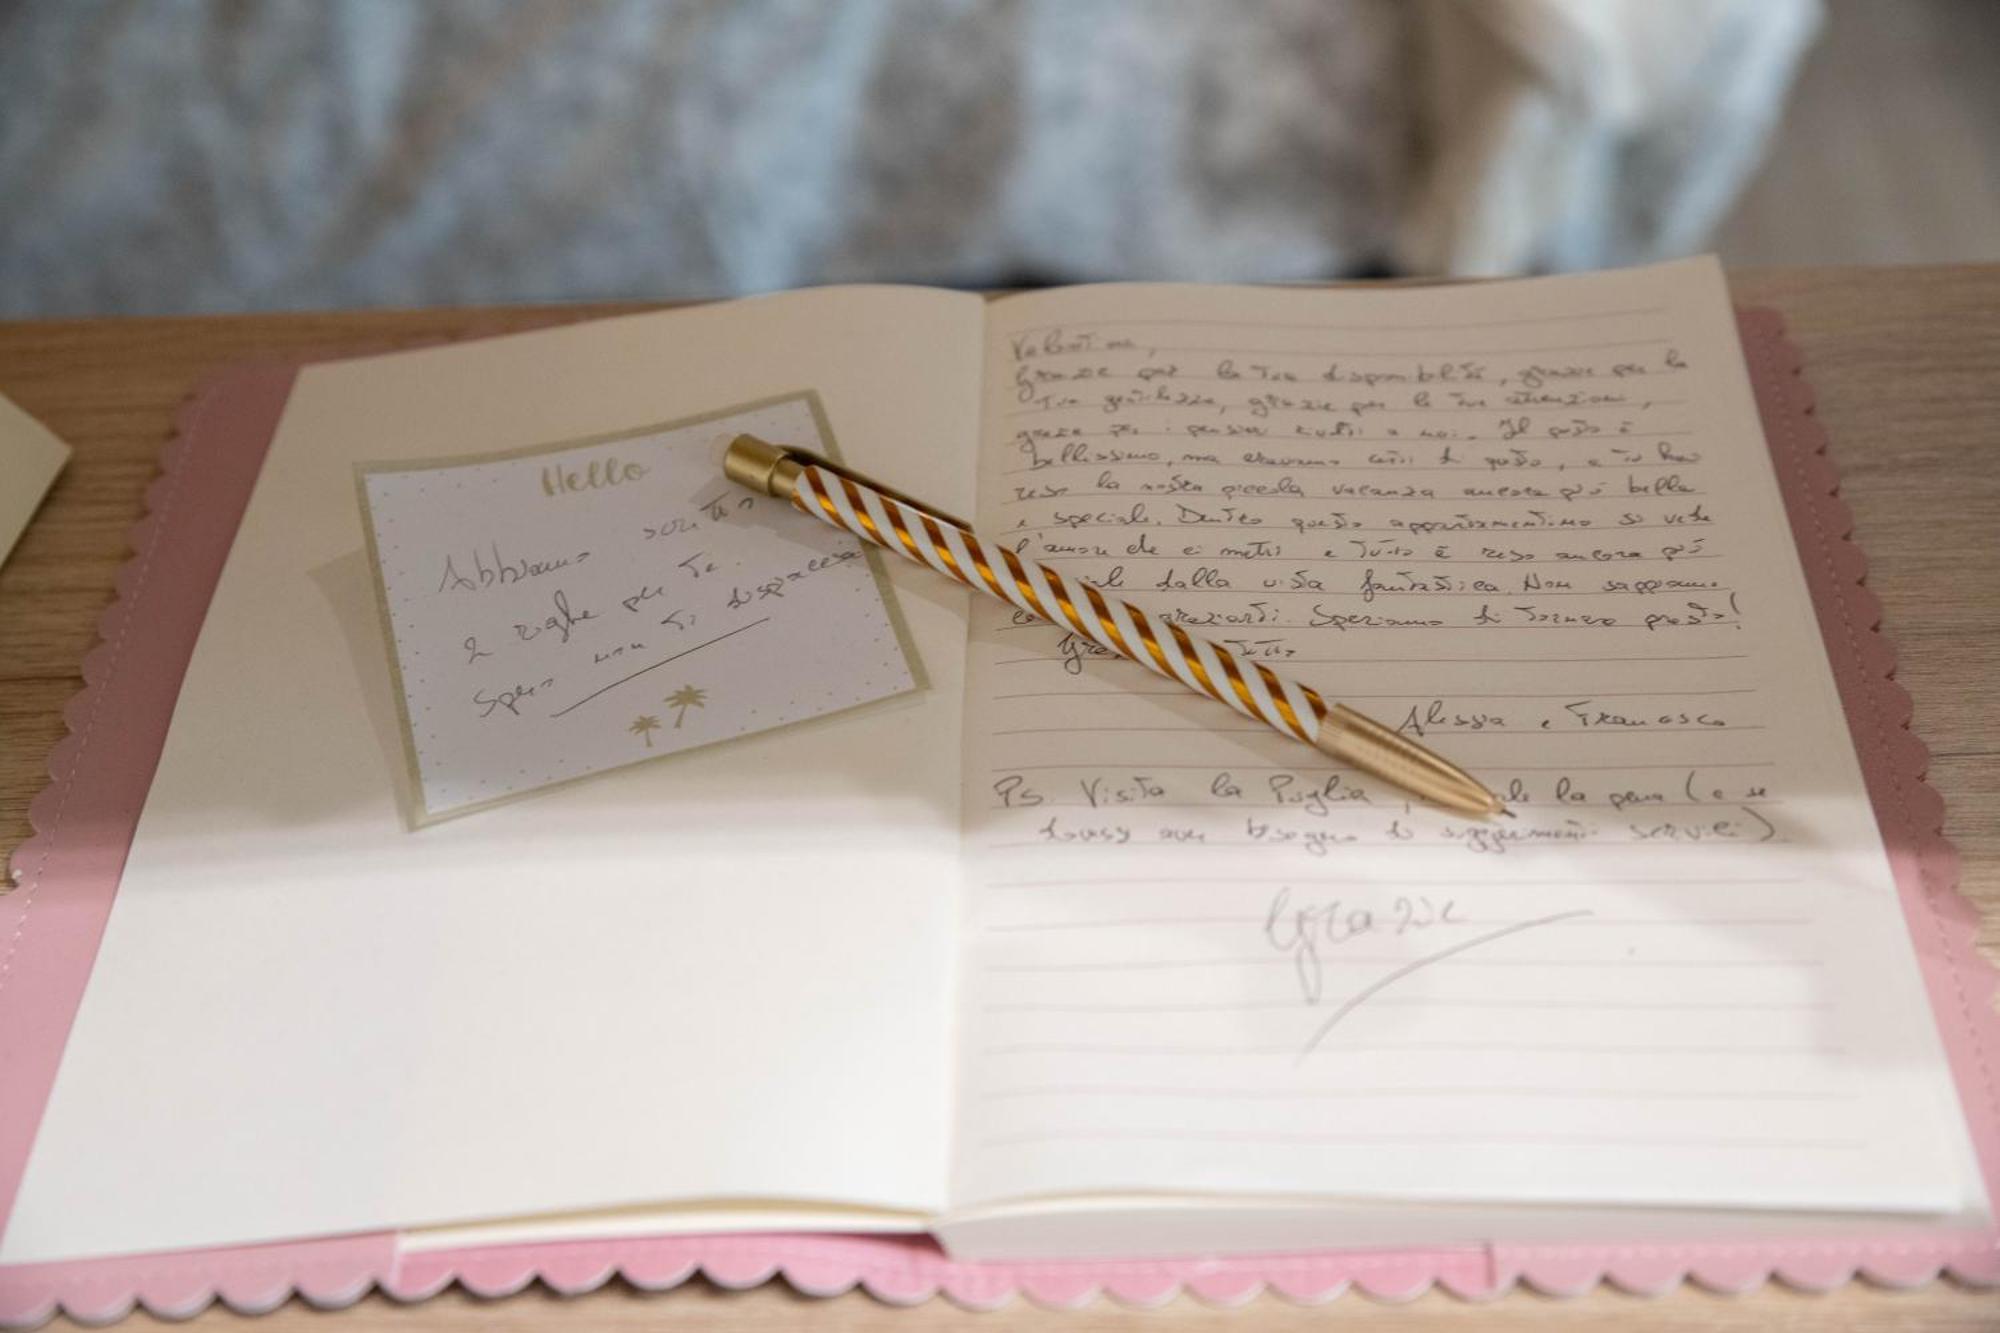 Hello
Abbiamo scritto
2 righe per te.
Spero non ti dispiaccia
Valentina,
Grazie per la tua disponibilità, grazie per la
tua gentilezza, grazie per le tue attenzioni,
grazie per i pensieri rivolti a noi. Il posto è
bellissimo, ma eravamo certi di questo, e tu hai
reso la nostra piccola vacanza ancora più bella
e speciale. Dentro questo appartamentino si vede
l'amore che ci metti e tutto è reso ancora più
dalla vista fantastica. Non sappiamo
ringraziarti. Speriamo di tornare presto!
tutto
Alessia e Francesco
Ps. Visita la Puglia, vale la pena (e se
dovessi aver bisogno di suggerimenti scrivici)
Grazie